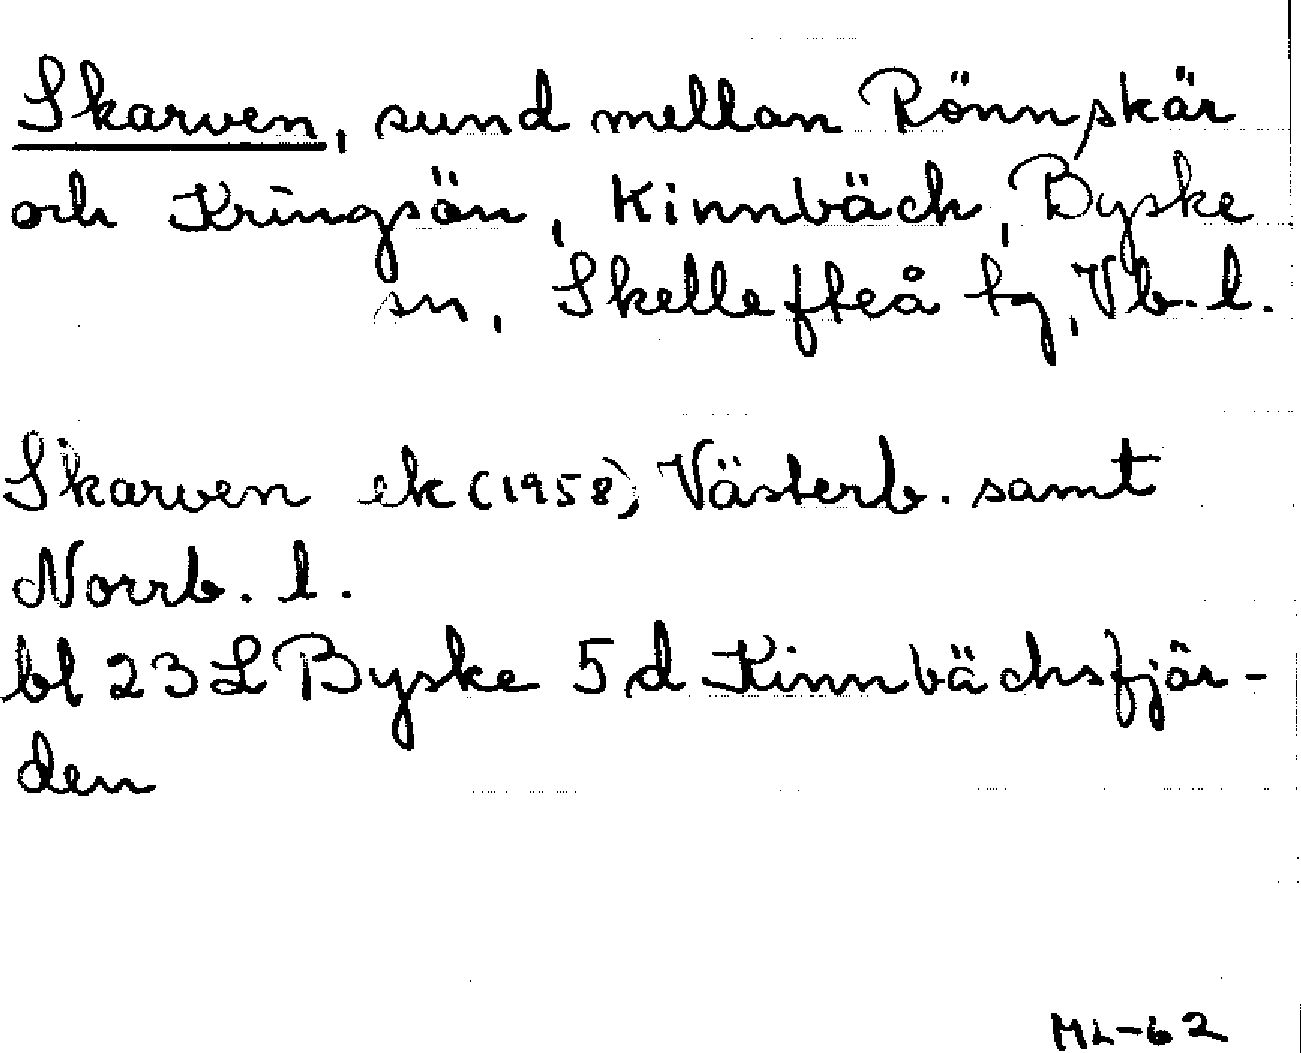 Skarven, sund mellan Rönnskär
och Kringsön, Kinnbäck, Byske
sn, Skellefteå tg, Vb. l.
Skarven ek (1958) Västerb. samt
Norrb. l.
bl 23 L Byske 5 d Kinnbäcksfjär-
den
ML-62